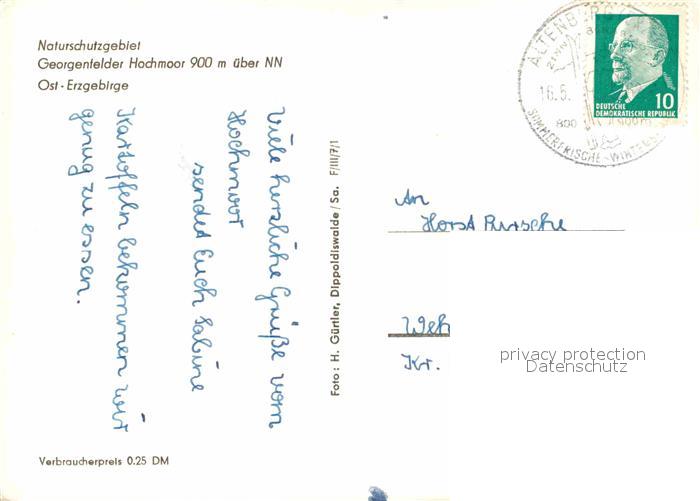 Naturschutzgebiet
Georgenfelder Hochmoor 900 m über NN
Ost-Erzgebirge
Viele herzliche Grüße vom
Hochmoor
sendet Euch Sabine
Kartoffeln bekommen wir
genug zu essen.
Verbraucherpreis 0.25 DM
Foto: H. Gürtler, Dippoldiswalde/Sa. F/III/7/1
ALTENBERG
16.5.
800
SOMMERFRISCHE-WINTERS
DEUTSCHE
DEMOKRATISCHE REPUBLIK
10
An
Horst
Weh
Kr.
privacy protection
Datenschutz